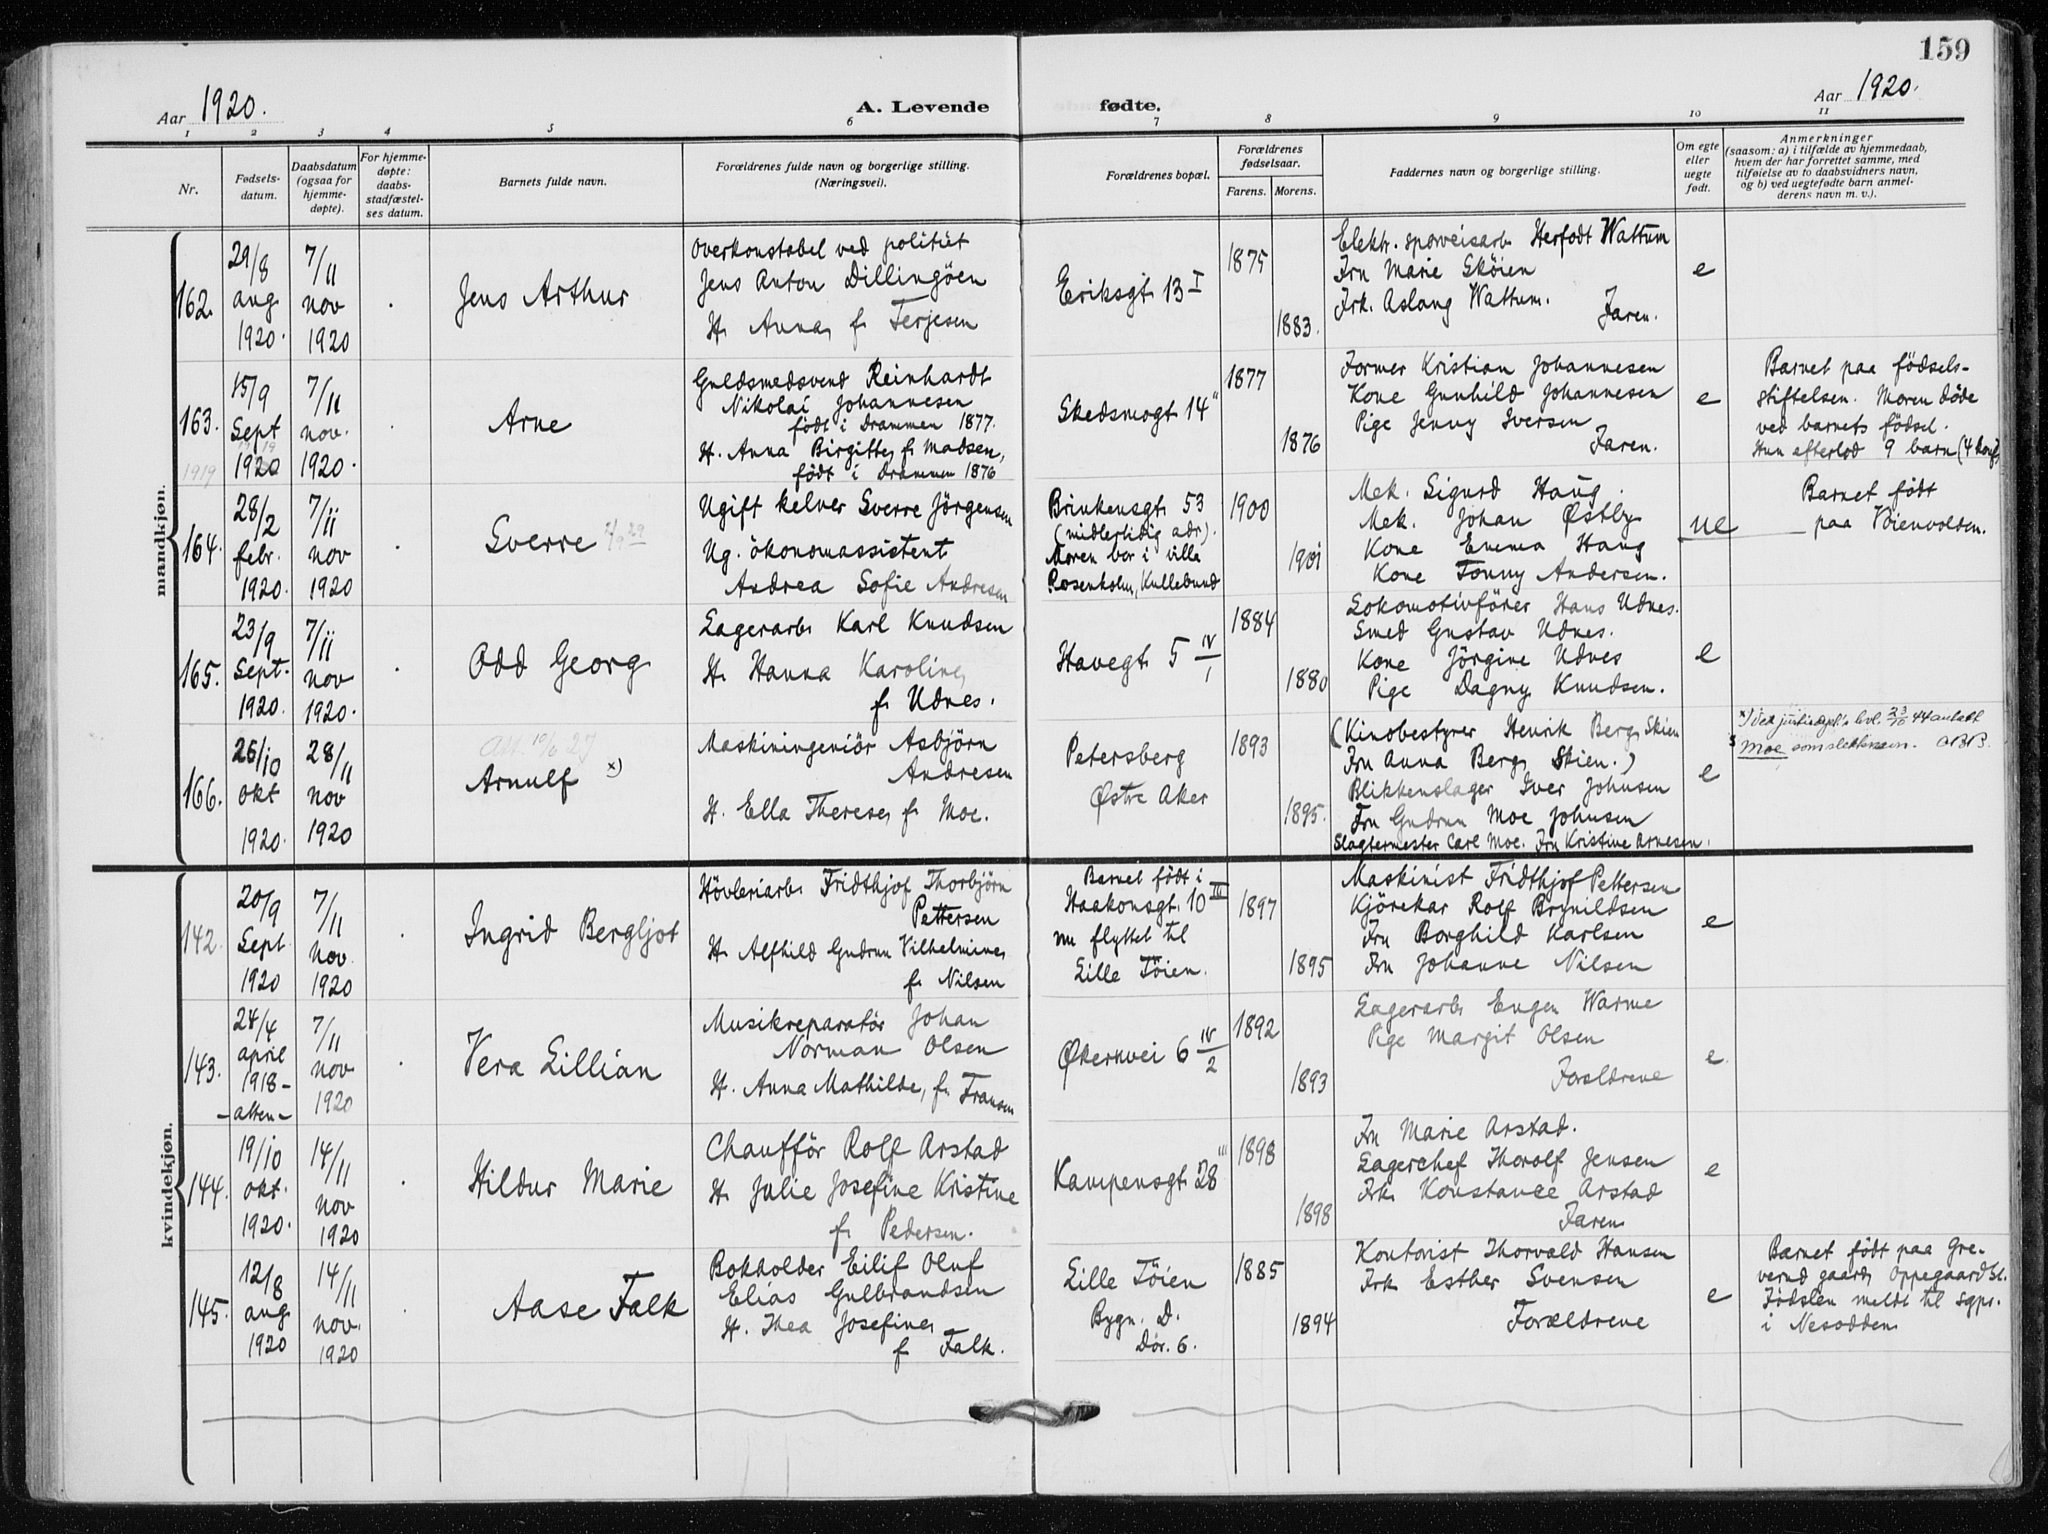 159
Aar 1920.
A. Levende fødte.
Aar 1920.
1 2 3 4 5 6 7 8 9 10 11
Nr.
Fødsels-
datum.
Daabsdatum
(ogsaa for
hjemme-
døpte).
For hjemme-
døpte:
daabs-
stadfæstel-
ses datum.
Barnets fulde navn.
Forældrenes fulde navn og borgerlige stilling.
(Næringsvei).
Forældrenes bopæl.
Forældrenes
fødselsaar.
Farens. Morens.
Faddernes navn og borgerlige stilling.
Om egte
eller
uegte
født.
Anmerkninger
(saasom: a) i tilfælde av hjemmedaab,
hvem der har forrettet samme, med
tilføielse av to daabsvidners navn,
og b) ved uegtefødte barn anmel-
derens navn m. v.).
mandkjøn.
162.
29/8
aug
1920.
7/11
nov
1920
Jens Arthur
Overkonstabel ved politiet
Jens Anton Dillingöen
H. Anna, f. Terjesen
Eriksgt. 13 I
1875
1883.
Elektr. sporveisarb. Herfodt Wattum
Fru Marie Sköien
Frk. Aslaug Wattum.
Faren.
e
163.
1919
15/9
Sept
1920
7/11
nov.
1920.
Arne
Guldsmedsvend Reinhardt
Nikolai Johannesen
födt i Drammen 1877.
H. Anna Birgitte, f. Madsen,
födt i Drammen 1876
Skedsmogt. 14 II
1877
1876
Former Kristian Johannesen
Kone Gunhild Johannesen
Pige Jenny Iversen
Faren.
e
Barnet paa födsels-
stiftelsen. Moren döde
ved barnets födsel.
Hun efterlod 9 barn (4 konf.)
164.
28/2
febr.
1920.
7/11
nov
1920
Sverre
Ugift kelner Sverre Jörgensen
Ug. ökonomassistent
Andrea Sofie Andresen
Brinkensgt. 53
(midlertidig adr).
Moren bor i villa
Rosenholm, Kullebund
1900
1901
Mek. Sigurd Haug.
Mek. Johan Østby
Kone Emma Haug
Kone Tonny Andersen.
ue
Barnet födt
paa Vöienvolden.
165.
23/9
Sept.
1920.
7/11
nov
1920.
Odd Georg
Lagerarb. Karl Knudsen
H. Hanna Karoline,
f. Udnes.
Havegt. 5 IV/1
1884
1880
Lokomotivförer Hans Udnes.
Smed Gustav Udnes.
Kone Jörgine Udnes
Pige Dagny Knudsen.
e
166.
26/10
okt
1920.
28/11
nov
1920
Att. 10/6 27
Arnulf x)
Maskiningeniör Asbjörn
Andresen
H. Ella Therese, f. Moe.
Petersberg
Østre Aker
1893
1895.
(Kinobestyrer Henrik Berg, Skien
Fru Anna Berg, Skien.)
Blikkenslager Iver Johnsen
Fru Gudrun Moe Johnsen
Slagtermester Carl Moe. Fru Kristine Arnesen.
e
x) Ved justisdept's bvl. 23/10 44 antatt
Moe som slektsnavn.
kvindekjøn.
142.
20/9
Sept
1920
7/11
nov.
1920
Ingrid Bergljot
Hövleriarb. Fridthjof Thorbjörn
Pettersen
H. Alfhild Gudrun Vilhelmine,
f. Nilsen
Barnet födt i
Haakonsgt. 10 III
nu flyttet til
Lille Töien.
1897
1895
Maskinist Fridthjof Pettersen
Kjörekar Rolf Brynildsen
Fru Borghild Karlsen
Fru Johanne Nilsen
e
143.
24/4
april
1918-
-atten-
7/11
nov
1920
Vera Lillian
Musikreparatör Johan
Norman Olsen
H. Anna Mathilde, f. Fransen
Økernvei 6 IV/2
1892
1893
Lagerarb. Eugen Warme
Pige Margit Olsen
Forældrene
e
144.
19/10
okt.
1920.
14/11
nov
1920
Hildur Marie
Chaufför Rolf Arstad
H. Julie Josefine Kristine
f. Pedersen.
Kampensgt. 28 III
1898
1898
Fru Marie Arstad.
Lagerchef Thorolf Jensen
Frk. Konstance Arstad
Faren
e
145.
12/8
aug
1920
14/11
nov.
1920
Aase Falk
Bokholder Eilif Oluf
Elias Gulbrandsen
H. Thea Josefine,
f. Falk.
Lille Töien
Bygn. D.
Dör. 6.
1885
1894
Kontorist Thorvald Hansen
Frk. Esther Svensen
Forældrene
e
Barnet födt paa Gre-
verud gaard, Oppegaard st.
Födslen meldt til sgpr.
i Nesodden